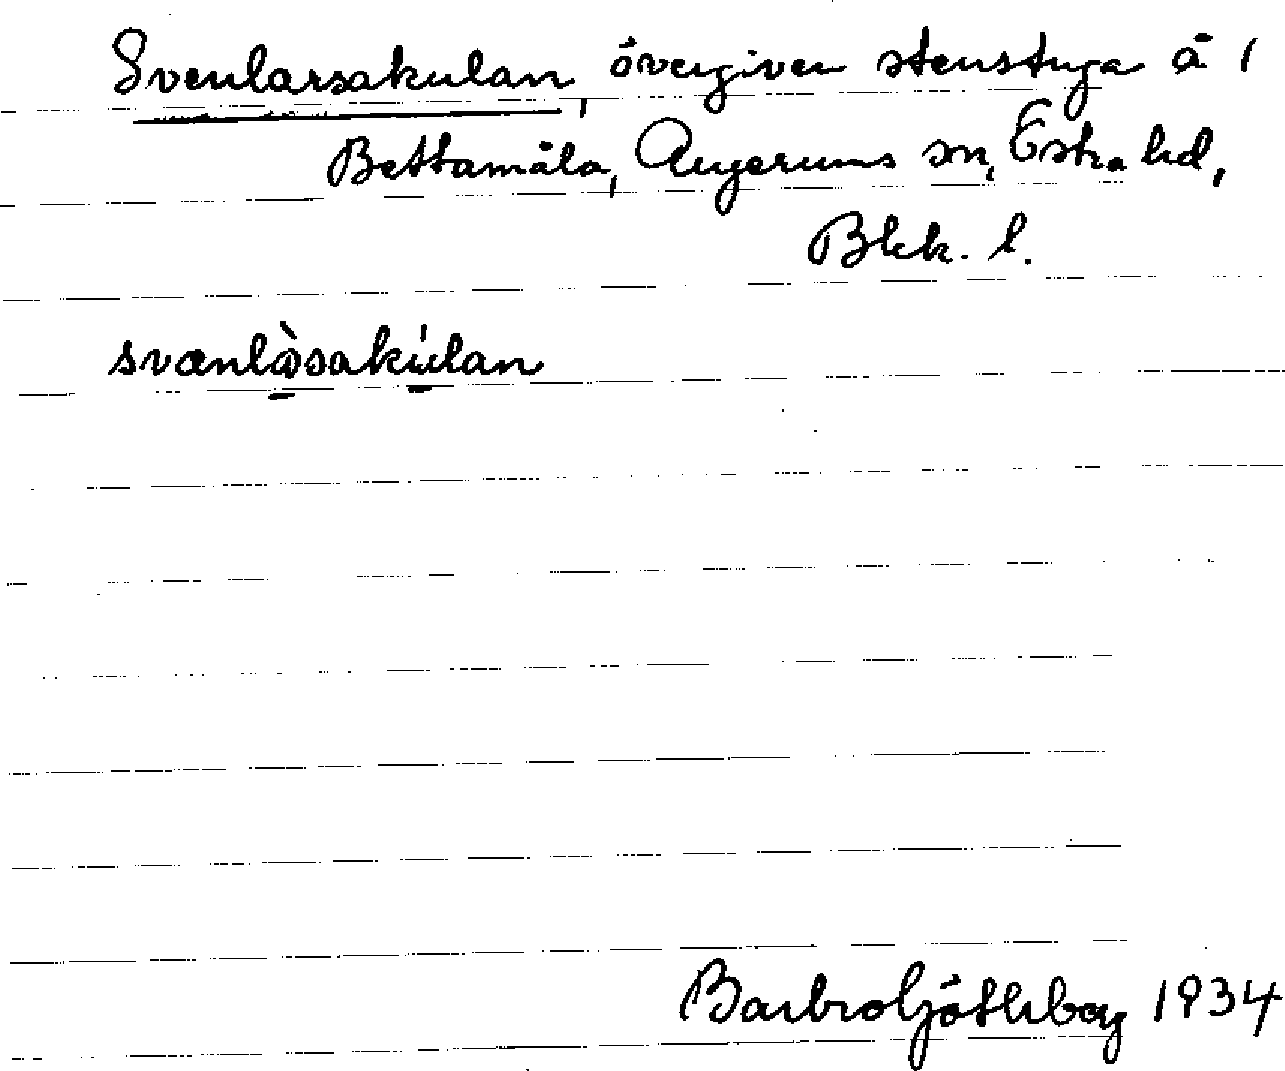 Svenlarsakulan, övergiven stenstuga å 1
Bettamåla, Augerums sn, Östra hd,
Blek. l.
svænlàsakúlan
Barbro Götlebong 1934